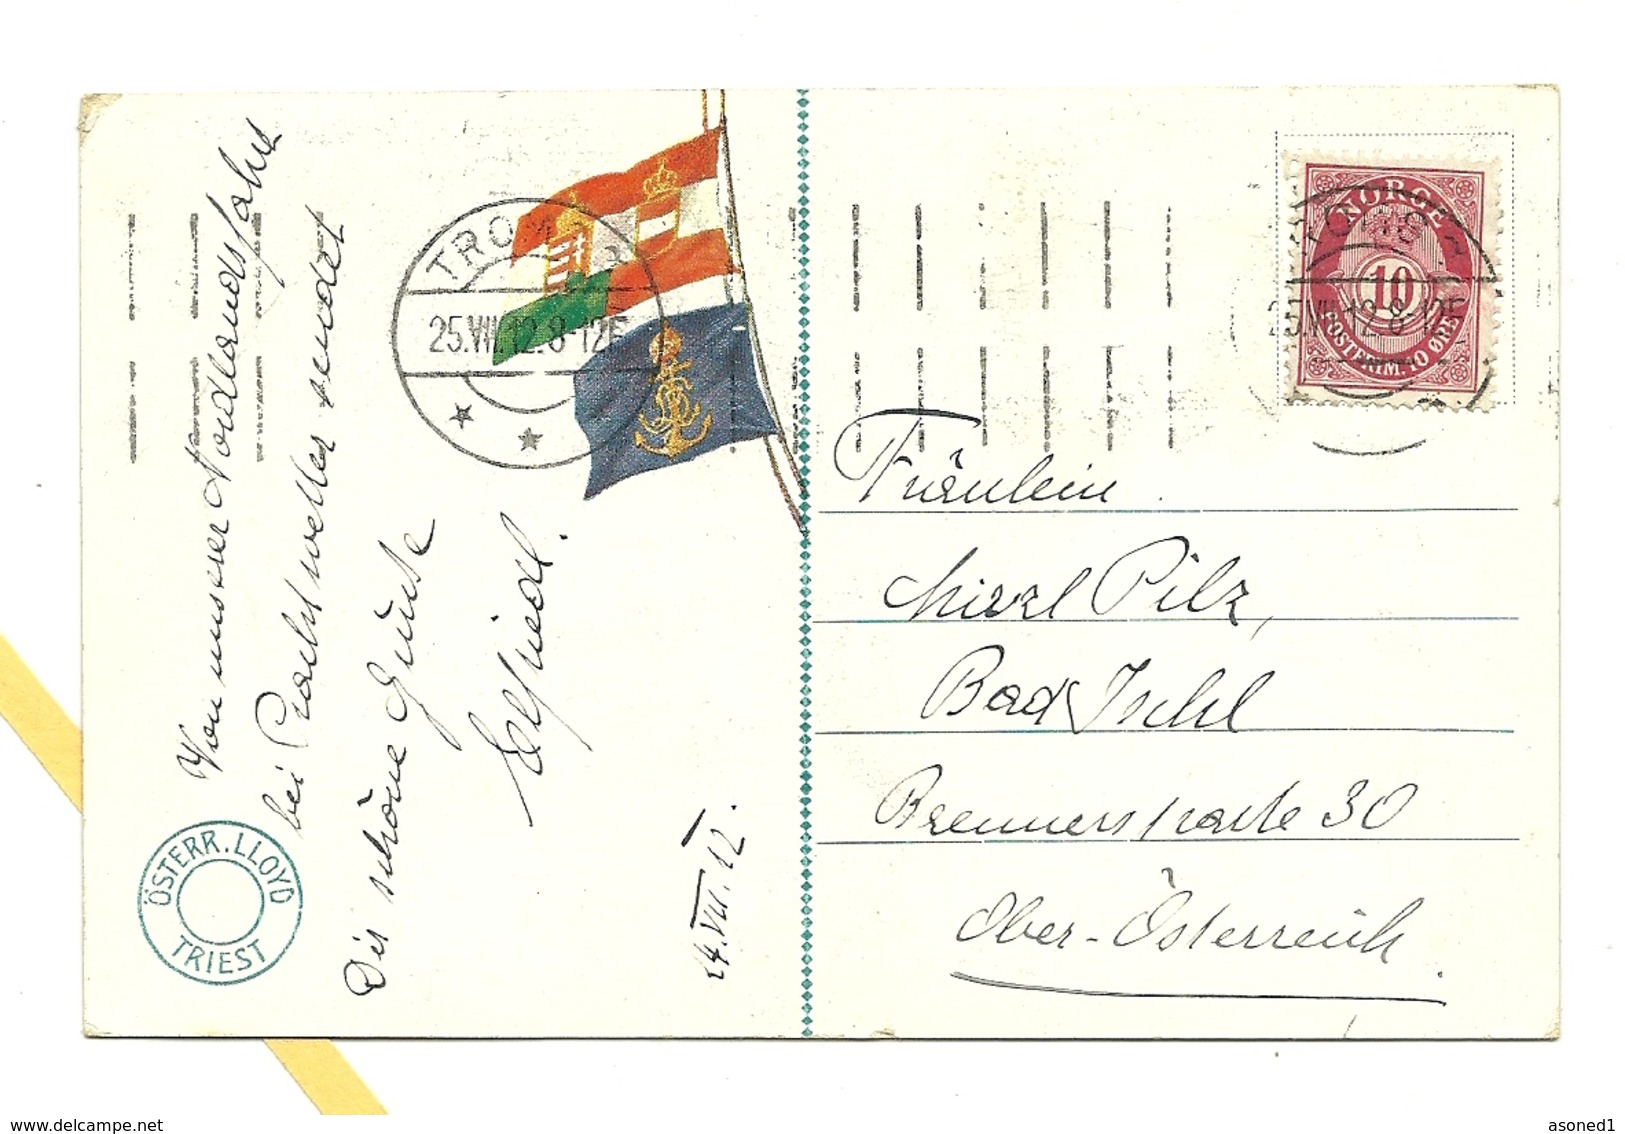 Von unserer Nordlandsfahrt
bei Prachtwetter sendet
Dir schöne Grüße
Elfried.
24.VII.12.
ÖSTERR. LLOYD
TRIEST
TROM
25.VII.12.8-12F
NORGE
10
POSTFRIM. 10 ØRE
25.VII.12.8-12F
Fräulein
Mizzl Pilz,
Bad Ischl
Brennerstraße 30
Ober-Österreich.
www.delcampe.net
asoned1